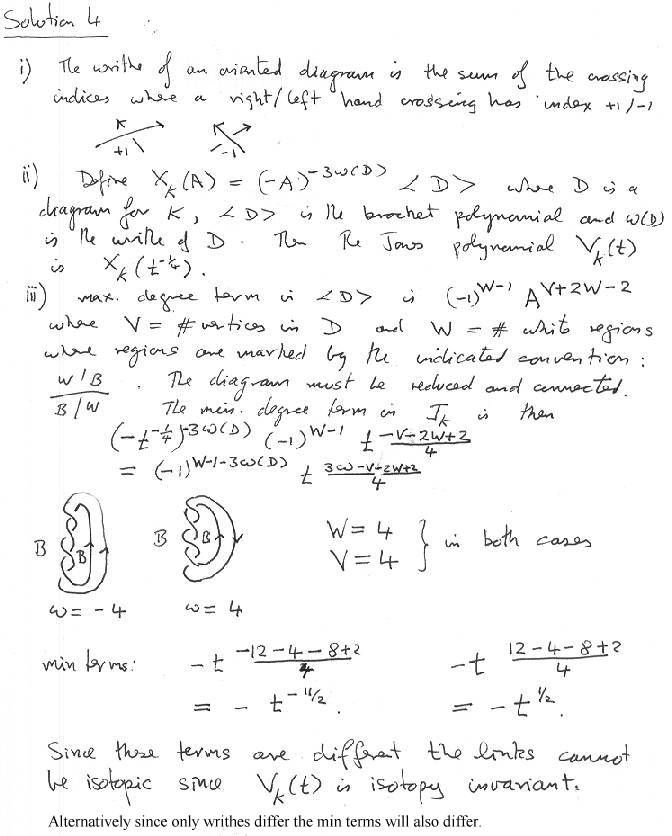 Solution 4
i) The writhe of an oriented diagram is the sum of the crossing
indices where a right/left hand crossing has index +1/-1
+1 -1
ii) Define X_K(A) = (-A)^{-3ω(D)} <D> where D is a
diagram for K, <D> is the bracket polynomial and ω(D)
is the writhe of D. Then the Jones polynomial V_K(t)
is X_K(t^{-1/4}).
iii) max. degree term in <D> is (-1)^{W-1} A^{V+2W-2}
where V = # vertices in D and W = # white regions
where regions are marked by the indicated convention:
W / B
B / W
. The diagram must be reduced and connected.
The min. degree term in J_K is then
(-t^{-1/4})^{-3ω(D)} (-1)^{W-1} t^{(-V-2W+2)/4}
= (-1)^{W-1-3ω(D)} t^{(3ω-V-2W+2)/4}
B B B B W = 4
V = 4 } in both cases
ω = -4 ω = 4
min terms: -t^{(-12-4-8+2)/4} -t^{(12-4-8+2)/4}
= -t^{-11/2}. = -t^{1/2}.
Since these terms are different the links cannot
be isotopic since V_K(t) is isotopy invariant.
Alternatively since only writhes differ the min terms will also differ.